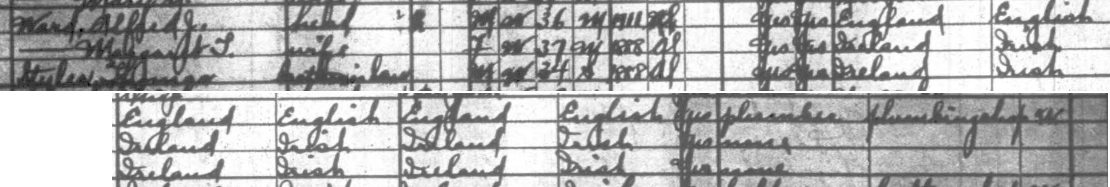 Ward, Alfred J. head R M W 36 M 1911 Yes Yes England English
— Margaret T. wife F W 37 M 1888 Al Yes Yes Ireland Irish
Thomas brother in law M W 34 S 1888 Al Yes Yes Ireland Irish
England English England English Yes plumber plumbing shop W
Ireland Irish Ireland Irish Yes none
Ireland Irish Ireland Irish Yes none